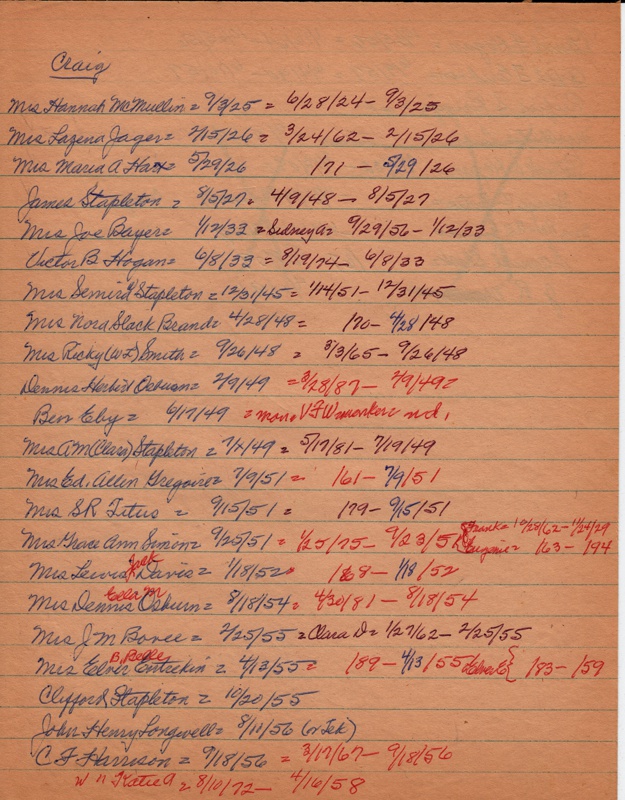 Craig
Mrs Hannah McMullin = 9/3/25 = 6/28/24 - 9/3/25
Mrs Lazena Jager = 2/15/26 = 3/24/62 - 2/15/26
Mrs Maria A Hax = 5/29/26 171 - 5/29/26
James Stapleton = 8/5/27 = 4/9/48 - 8/5/27
Mrs Joe Bayer = 1/12/33 = Sidney A = 9/29/56 - 1/12/33
Victor B Hogan = 6/8/33 = 8/19/74 - 6/8/33
Mrs Stapleton = 12/31/45 = 1/14/51 - 12/31/45
Mrs Nora Slack Brand = 4/28/48 = 170 - 4/28/48
Mrs Ricky (W L) Smith = 9/26/48 = 3/3/65 - 9/26/48
Dennis Herbert Osburn = 2/9/49 = 3/28/87 - 2/9/49 =
Ben Eby = 6/17/49 = mone VFW marker n.d.
Mrs A M (Clara) Stapleton = /49 = 5/17/81 - 7/19/49
Mrs Ed. Allen Gregoire = 7/9/51 = 161 - 7/9/51
Mrs S R Titus = 9/15/51 = 179 - 9/15/51
Mrs Grace Ann Simon = 9/25/51 = 1/25/75 - 9/23/51 Frank = 10/28/62 - 1/24/29
Eugenie = 163 - 194
Mrs Lewis Jack Davis = 1/18/52 = 168 - 1/18/52
Mrs Dennis Eela M Osburn = 8/18/54 = 4/30/81 - 8/18/54
Mrs J M Boree = 2/25/55 = Clara D = 1/27/62 - 2/25/55
Mrs Elver B. Belle Entrekin = 4/13/55 = 189 - 4/13/55 Elver E { 183 - 159
Clifford Stapleton = 10/20/55
John Henry Longwell = 8/11/56 (or Tek)
C F Harrison = 9/18/56 = 3/17/67 - 9/18/56
w " Katie A = 8/10/72 - 4/16/58